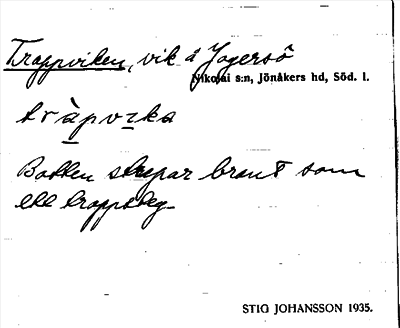 Trappviken, vik å Jogersö
Nikolai s:n, Jönåkers hd, Söd. l.
tràpvɪka
Botten stupar brant som
ett trappsteg
STIG JOHANSSON 1935.